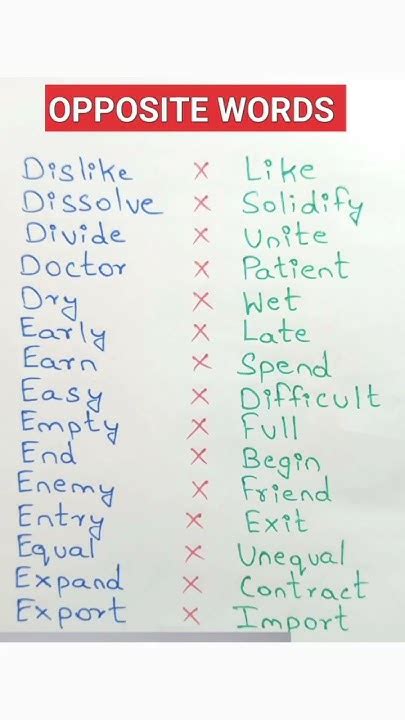 OPPOSITE WORDS
Dislike × Like
Dissolve × Solidify
Divide × Unite
Doctor × Patient
Dry × Wet
Early × Late
Earn × Spend
Easy × Difficult
Empty × Full
End × Begin
Enemy × Friend
Entry × Exit
Equal × Unequal
Expand × Contract
Export × Import